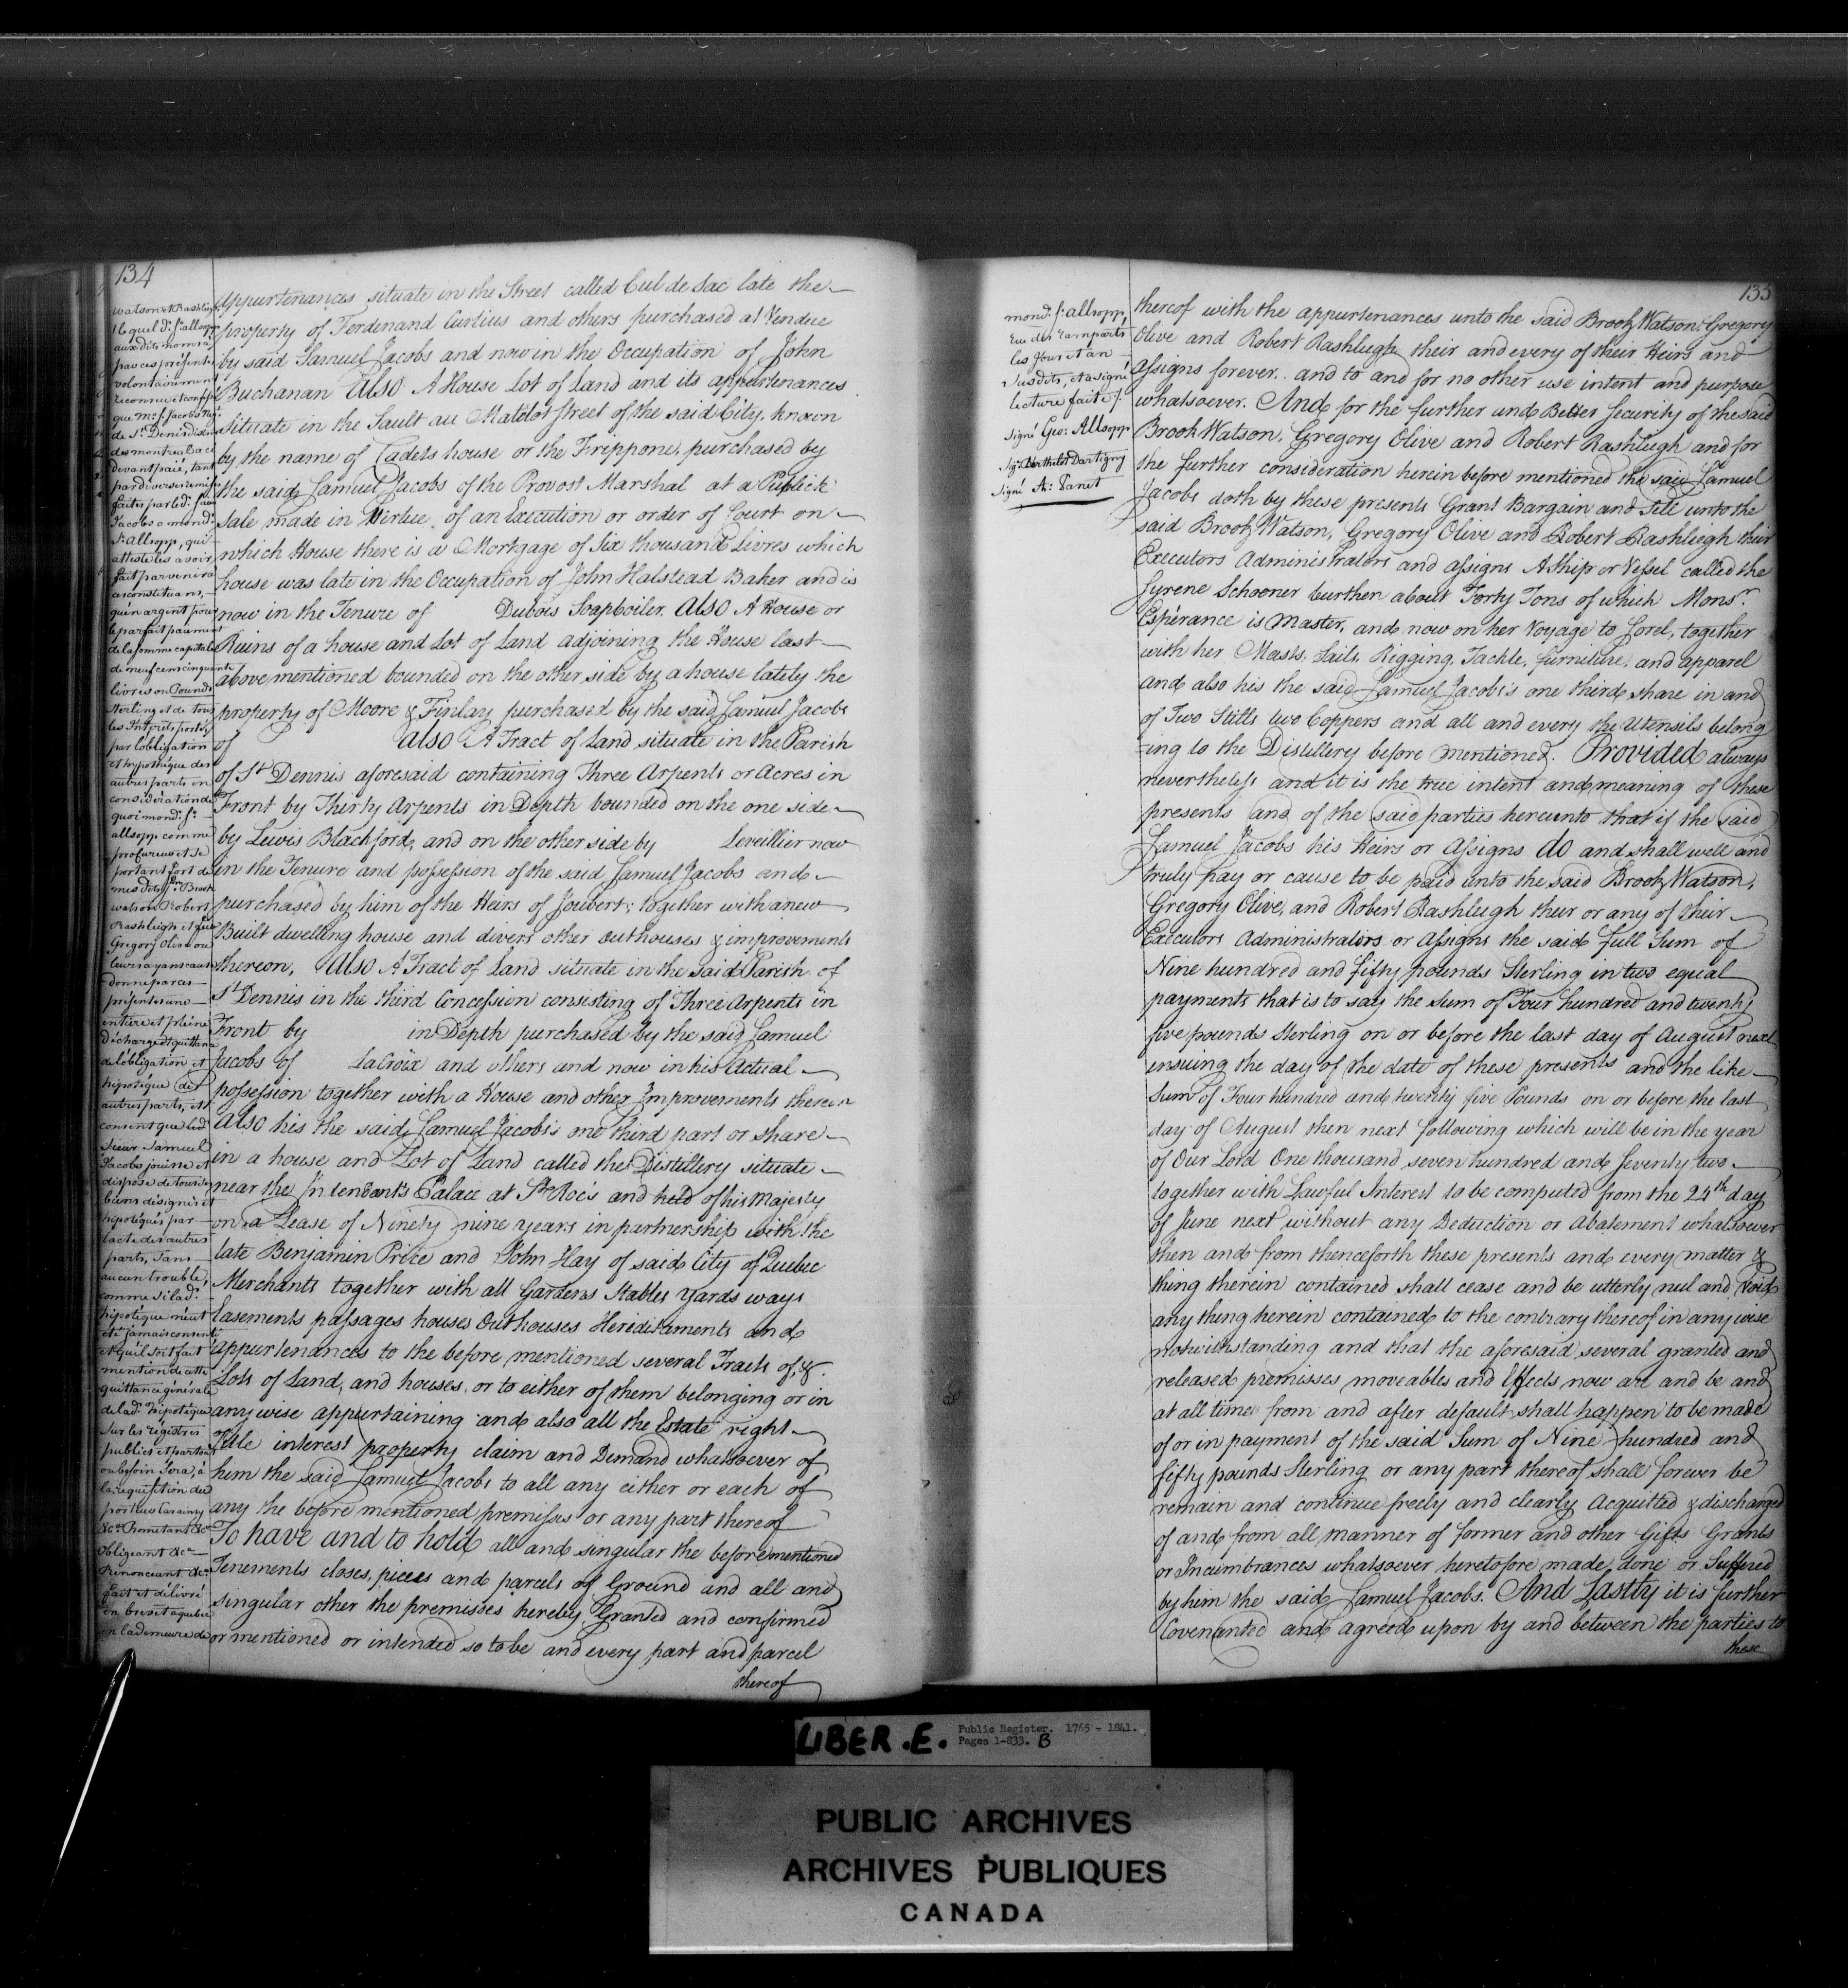 134
watson et Rashleigh
lequel d. Sr. allsopp
aux dits noms a
par ces présentes
volontairement
reconnu et confessé
que Mr. S. Jacobs Négt.
de St. Denis district
de montreal a ci
devant paié, tant
par diverses remises
faites par led. Sieur
Jacobs a mond.
Sr. allsopp, qui
atteste les avoir
fait parvenir a
ces constituans,
qu'en argent pour
le parfait paiement
de la somme capitale
de neuf cens cinquante
livres ou Pounds
Sterling et de tous
les Intérets portés
par l'obligation
et hypothéque des
autres parts en
considération de
quoi mond. Sr.
allsopp comme
procureur et se
portant fort de
mes dits Srs. Brook
watson Robert
Rashleigh et feu
Gregory Olive ou
leurs ayans cause
donne par ces
présentes une
entiere et pleine
Décharge et quittance
de l'obligation et
hipotéque des
autres parts, et
consent que led.
Sieur Samuel
Jacobs jouisse et
dispose de tous les
biens désignés et
hipotéqués par
l'acte des autres
parts, sans
aucun trouble,
comme si lad.
hipotéque n'eut
été jamais consenti
et qu'il soit fait
mention de cette
quittance générale
de lad. hipotéque
sur les régistres
publics et partout
ou besoin sera, à
la réquisition du
porteur Car ainsy
&ca. Promettant &ca.
obligeant &ca.
Renonceant &ca.
fait et délivré
en brevet a quebec
en la demeure de
appurtenances situate in the Street called Cul de Sac late the
property of Ferdinand Curtius and others purchased at Vendue
by said Samuel Jacobs and now in the Occupation of John
Buchanan Also A House Lot of Land and its appurtenances
situate in the Sault au Matelot Street of the said City, known
by the name of Cadets house or the Frippone, purchased by
the said Samuel Jacobs of the Provost Marshal at a Publick
Sale made in Virtue of an Execution or order of Court on
which House there is a Mortgage of Six thousand Livres which
house was late in the Occupation of John Halstead Baker and is
now in the Tenure of Dubois Soapboiler. Also A House or
Ruins of a house and Lot of Land adjoining the House last
above mentioned bounded on the other side by a house lately the
property of Moore & Finlay purchased by the said Samuel Jacobs
of Also A Tract of Land situate in the Parish
of St. Dennis aforesaid containing Three Arpents or Acres in
Front by Thirty Arpents in Depth bounded on the one side
by Lewis Blachford, and on the other side by Leveillier now
in the Tenure and possession of the said Samuel Jacobs and
purchased by him of the Heirs of Joubert; together with a new
Built dwelling house and divers other Outhouses & improvements
thereon, Also A Tract of Land situate in the said Parish of
St. Dennis in the third Concession consisting of Three Arpents in
Front by in Depth purchased by the said Samuel
Jacobs of LaCroix and others and now in his Actual
possession together with a House and other Improvements therein
Also his the said Samuel Jacobs's one third part or share
in a house and Lot of Land called the Distillery situate
near the Intendant's Palace at St. Roc's and held of his Majesty
on a Lease of Ninety nine years in partnership with the
late Benjamin Price and John Hay of said City of Quebec
Merchants together with all Gardens Stables Yards ways
Easements passages houses Outhouses Hereditaments and
appurtenances to the before mentioned several Tracts of, &
Lots of Land, and houses, or to either of them belonging or in
any wise appertaining and also all the Estate right
title interest property claim and Demand whatsoever of
him the said Samuel Jacobs to all any either or each of
any the before mentioned premisses or any part thereof
To have and to hold all and singular the beforementioned
Tenements closes, pieces and parcels of Ground and all and
singular other the premisses hereby Granted and confirmed
or mentioned or intended so to be and every part and parcel
thereof
135
mond. Sr. allsopp,
rue des ramparts
les Jour et an
Susdits, et a signé
lecture faite /.
Signé Geo: Allsopp
Sigé. Berthelot Dartigny
Signé A: Panet
thereof with the appurtenances unto the said Brook Watson Gregory
Olive and Robert Rashleigh their and every of their Heirs and
Assigns forever. and to and for no other use intent and purpose
whatsoever. And for the further and Better Security of the said
Brook Watson, Gregory Olive and Robert Rashleigh and for
the further consideration herein before mentioned the said Samuel
Jacobs doth by these presents Grant Bargain and Sell unto the
said Brook Watson, Gregory Olive and Robert Rashleigh their
Executors Administrators and assigns A Ship or Vessel called the
Syrene Schooner burthen about Forty Tons of which Monsr.
Espérance is Master, and now on her Voyage to Sorel, together
with her Masts, Sails, Rigging, Tackle, furniture, and apparel
and also his the said Samuel Jacobs's one third share in and
of Two Stills two Coppers and all and every the Utensils belong
-ing to the Distillery before mentioned. Provided always
nevertheless and it is the true intent and meaning of these
presents and of the said parties hereunto that if the said
Samuel Jacobs his Heirs or Assigns do and shall well and
truly pay or cause to be paid unto the said Brook Watson,
Gregory Olive, and Robert Rashleigh their or any of their
Executors Administrators or Assigns the said full Sum of
Nine hundred and fifty pounds Sterling in two equal
payments that is to say the Sum of Four hundred and twenty
five pounds Sterling on or before the last day of August next
ensuing the day of the date of these presents and the like
Sum of Four hundred and twenty five Pounds on or before the last
day of August then next following which will be in the year
of Our Lord One thousand seven hundred and Seventy two
together with Lawful Interest to be computed from the 24th day
of June next without any Deduction or abatement whatsoever
then and from thenceforth these presents and every matter &
thing therein contained shall cease and be utterly nul and Void
any thing herein contained to the contrary thereof in any wise
notwithstanding and that the aforesaid several granted and
released premisses moveables and Effects now are and be and
at all times from and after default shall happen to be made
of or in payment of the said Sum of Nine hundred and
fifty pounds Sterling or any part thereof shall forever be
remain and continue freely and clearly Acquitted & discharged
of and from all manner of former and other Gifts Grants
or Incumbrances whatsoever heretofore made done or Suffered
by him the said Samuel Jacobs. And Lastly it is further
Covenanted and agreed upon by and between the parties to
these
LIBER.E. Public Register. 1765 - 1841.
Pages 1-833. B
PUBLIC ARCHIVES
ARCHIVES PUBLIQUES
CANADA